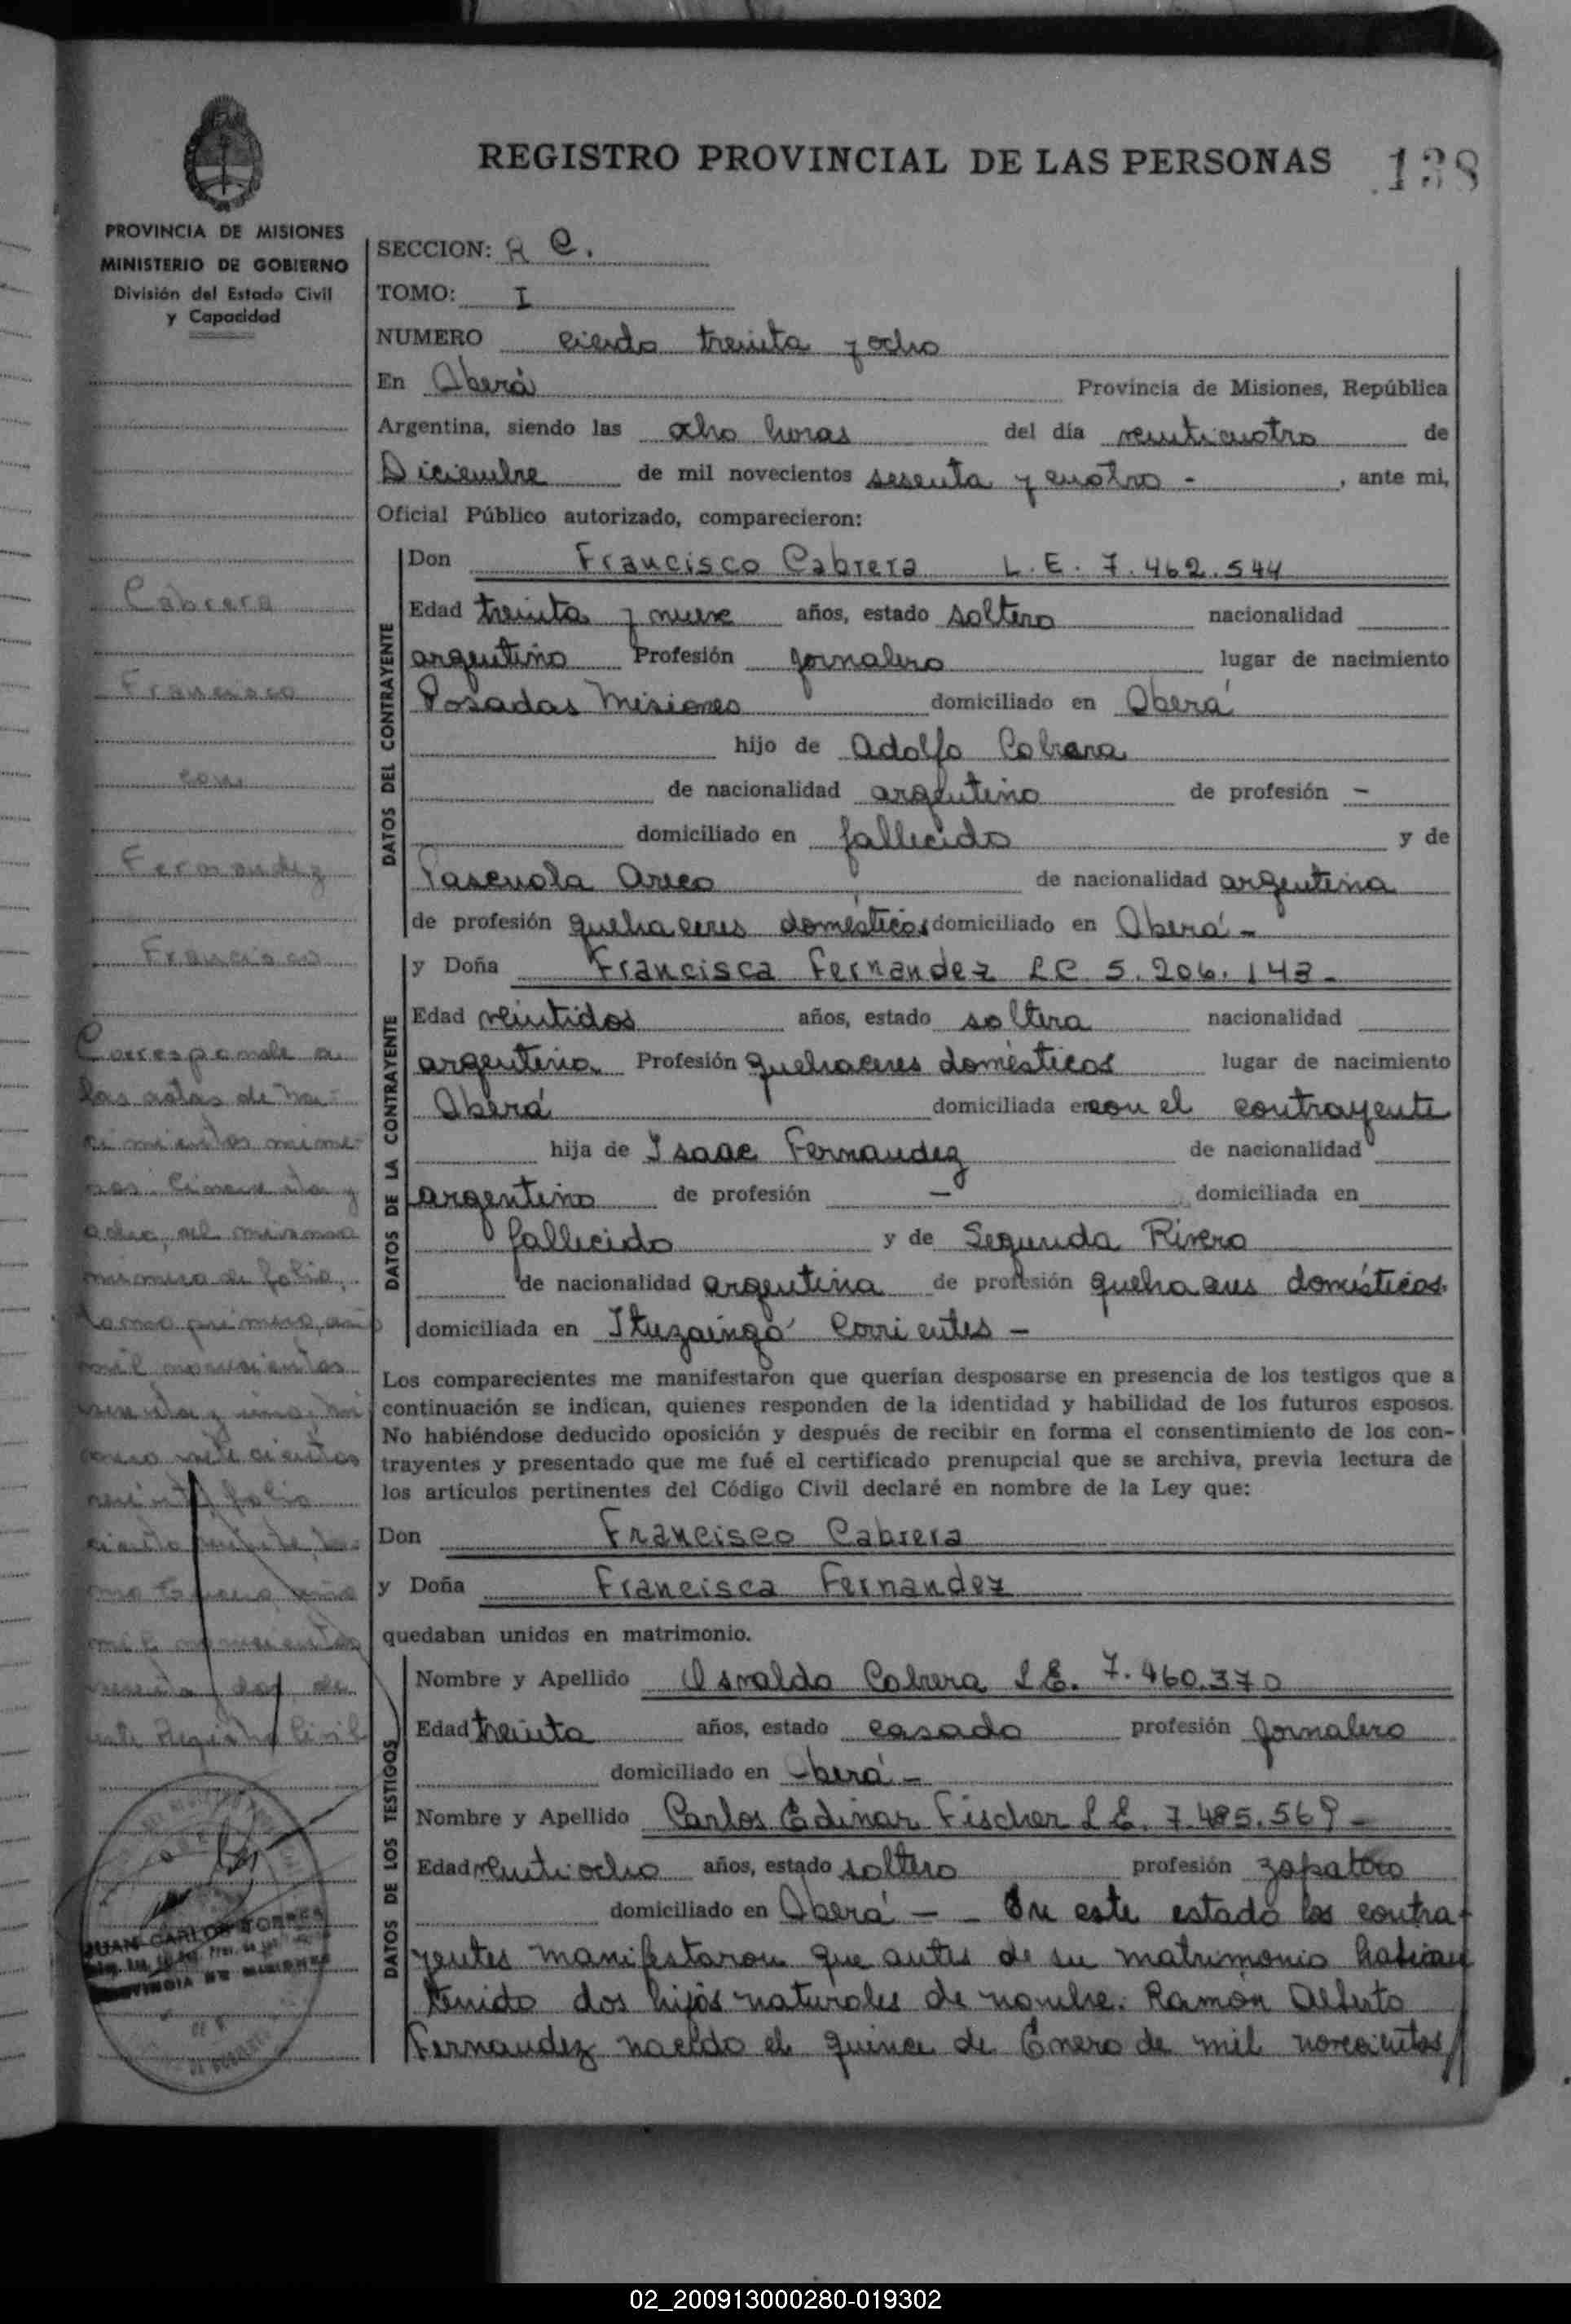 REGISTRO PROVINCIAL DE LAS PERSONAS 138
PROVINCIA DE MISIONES
MINISTERIO DE GOBIERNO
División del Estado Civil
y Capacidad
SECCION: R C.
TOMO: I
NUMERO ciento treinta y ocho
En Oberá Provincia de Misiones, República
Argentina, siendo las ocho horas del día veinticuatro de
Diciembre de mil novecientos sesenta y cuatro - , ante mi,
Oficial Público autorizado, comparecieron:
DATOS DEL CONTRAYENTE
Don Francisco Cabrera L. E. 7.462.544
Edad treinta y nueve años, estado soltero nacionalidad
argentino Profesión jornalero lugar de nacimiento
Posadas Misiones domiciliado en Oberá
hijo de Adolfo Cabrera
de nacionalidad argentino de profesión -
domiciliado en fallecido y de
Pascuala de nacionalidad argentina
de profesión quehaceres domésticos domiciliado en Oberá -
DATOS DE LA CONTRAYENTE
y Doña Francisca Fernandez LC 5.206.143 -
Edad veintidos años, estado soltera nacionalidad
argentina Profesión quehaceres domésticos lugar de nacimiento
Oberá domiciliada en con el contrayente
hija de Isaac Fernandez de nacionalidad
argentino de profesión - domiciliada en
fallecido y de Segunda Rivero
de nacionalidad argentina de profesión quehaceres domésticos
domiciliada en Ituzaingó Corrientes -
Los comparecientes me manifestaron que querían desposarse en presencia de los testigos que a
continuación se indican, quienes responden de la identidad y habilidad de los futuros esposos.
No habiéndose deducido oposición y después de recibir en forma el consentimiento de los con-
trayentes y presentado que me fué el certificado prenupcial que se archiva, previa lectura de
los artículos pertinentes del Código Civil declaré en nombre de la Ley que:
Don Francisco Cabrera
y Doña Francisca Fernandez
quedaban unidos en matrimonio.
DATOS DE LOS TESTIGOS
Nombre y Apellido Osvaldo Cabrera L E. 7.460.370
Edad treinta años, estado casado profesión jornalero
domiciliado en Oberá -
Nombre y Apellido Carlos Edinar Fischer L E. 7.485.569 -
Edad veintiocho años, estado soltero profesión zapatero
domiciliado en Oberá - - En este estado los contra-
yentes manifestaron que antes de su matrimonio habian
tenido dos hijos naturales de nombre: Ramón Alberto
Fernandez nacido el quince de Enero de mil novecientos
Cabrera
Francisco
con
Fernandez
Francisca
Corresponde a
las actas de na-
cimientos nume-
ros: Cincuenta y
ocho, del mismo
numero de folio,
tomo primero, año
mil novecientos
sesenta y uno;
setecientos
folio
ciento
año
mil novecientos
sesenta y dos, de
este Registro Civil
JUAN CARLOS TORRES
PROVINCIA DE MISIONES
02_200913000280-019302